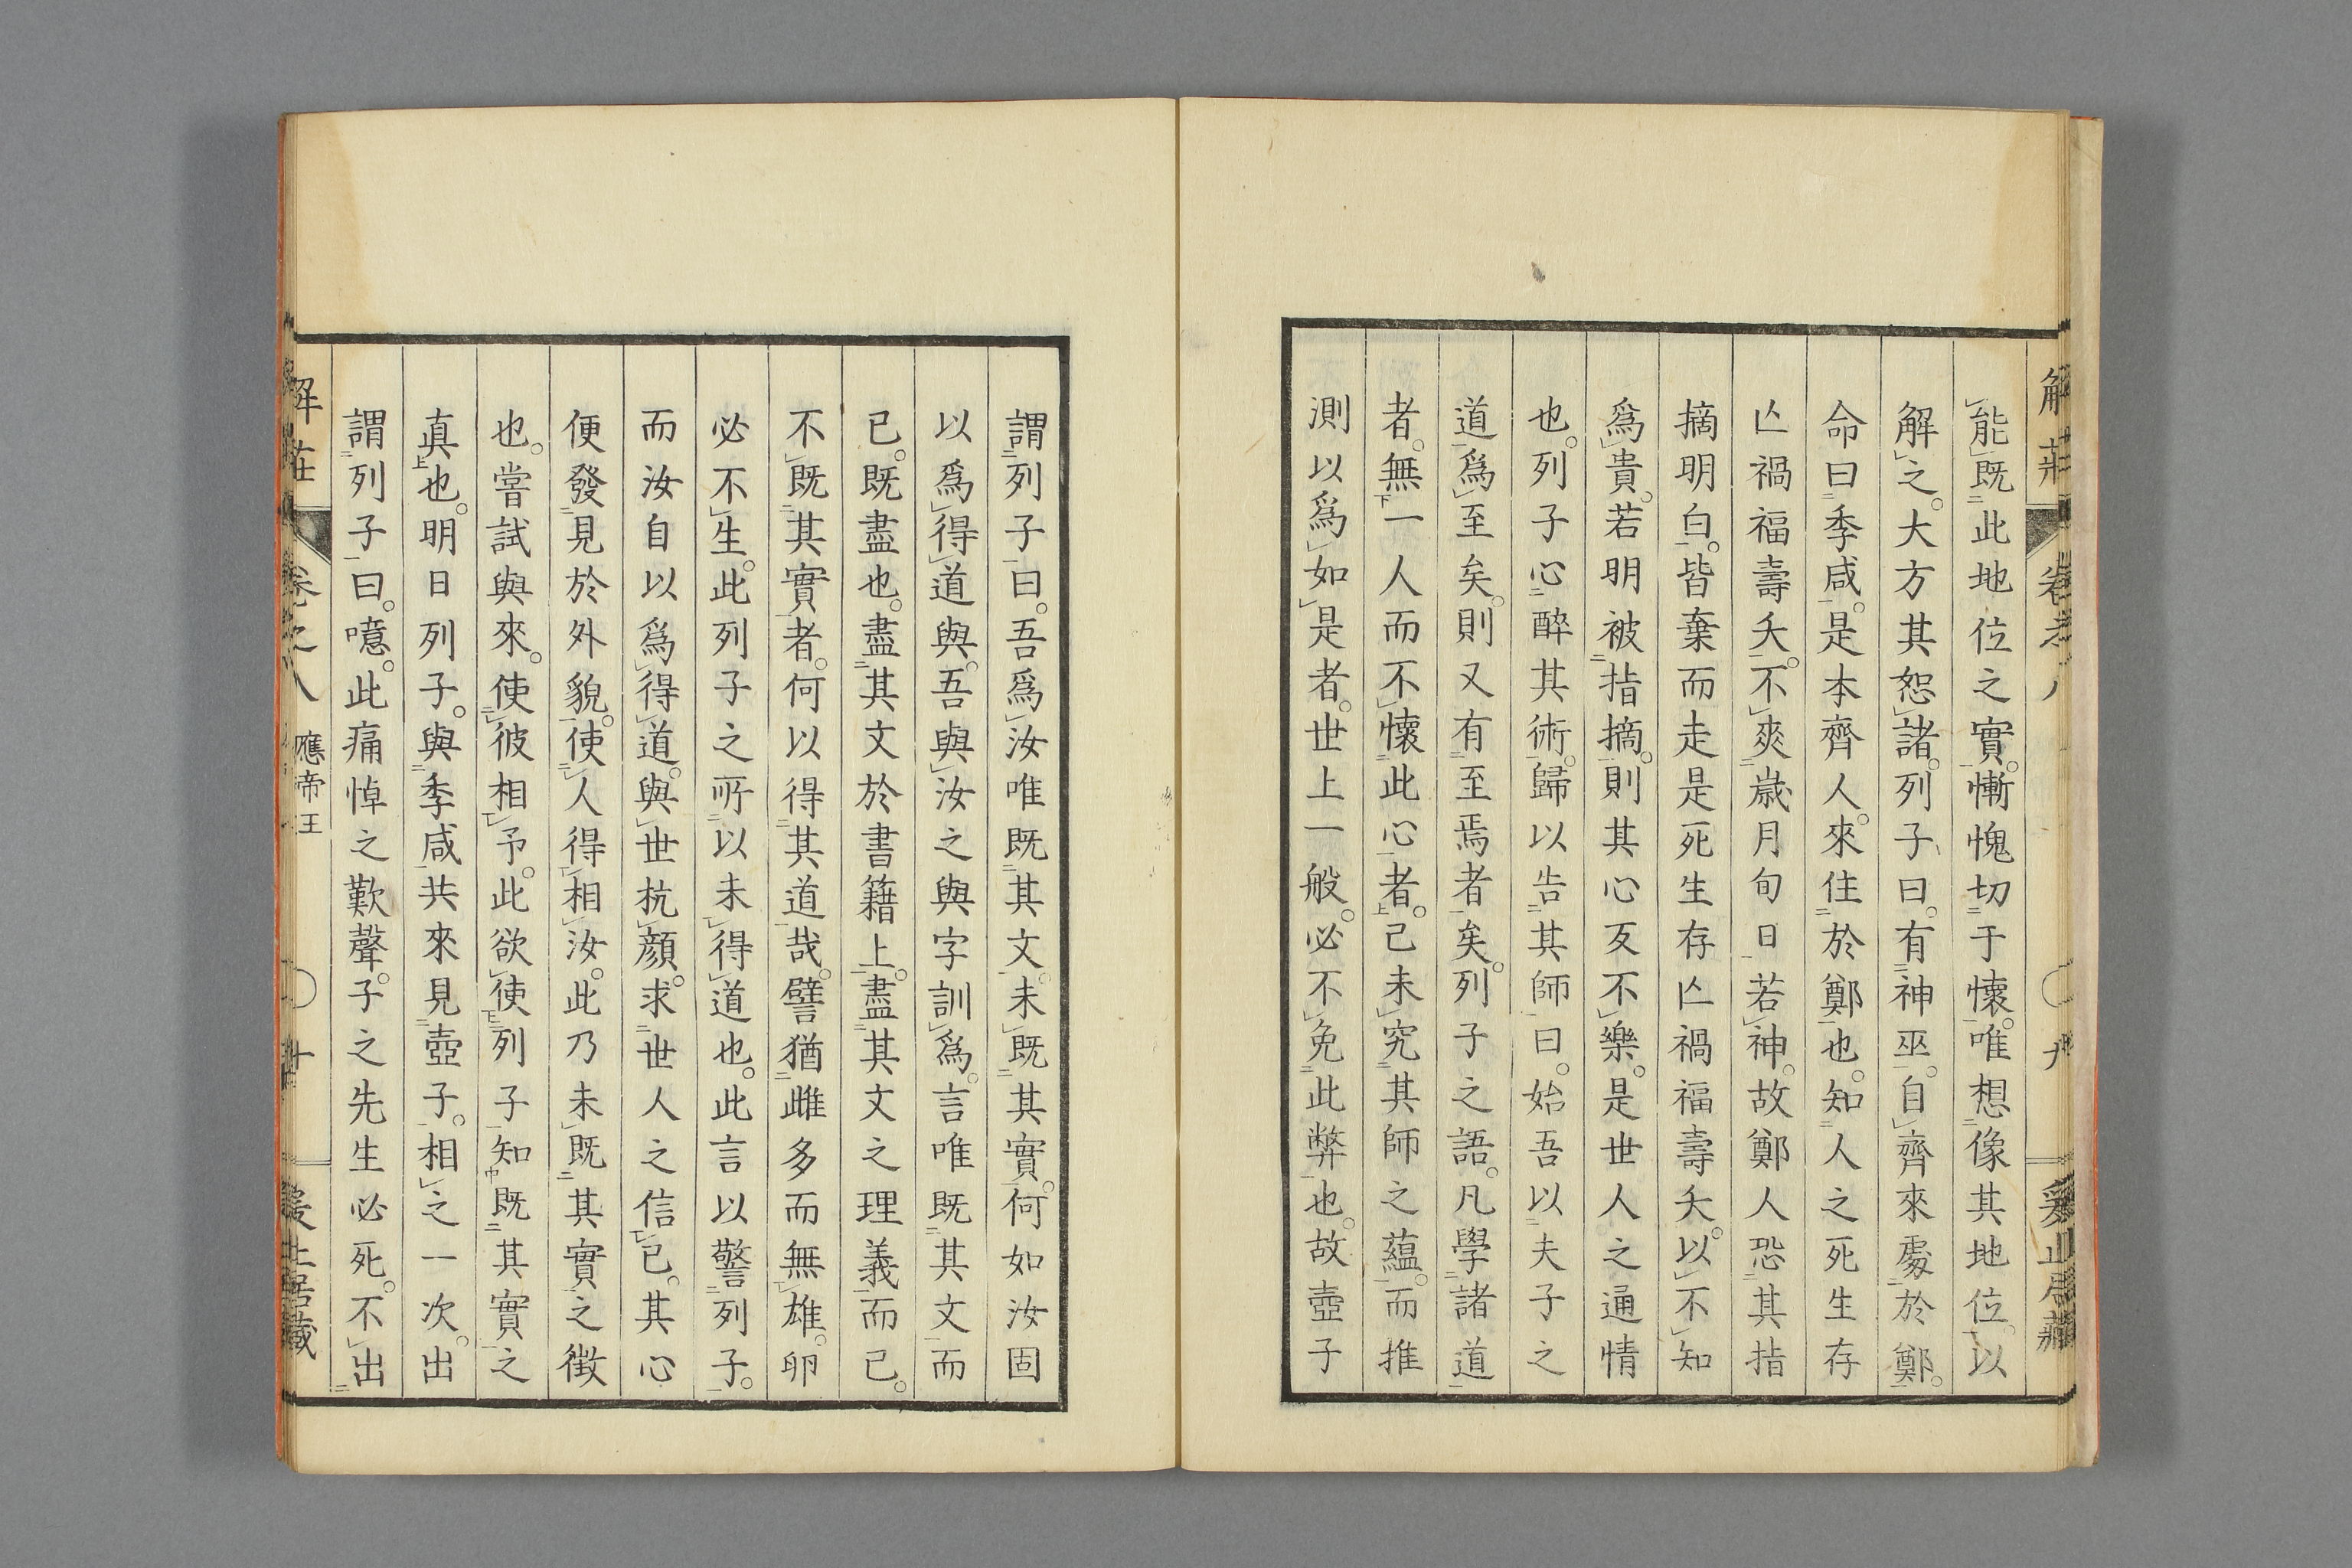 能既此地位之實。慚愧切于懷。唯想像其地位。以
解之。大方其恕諸。列子曰。有神巫。自齊來處於鄭。
命曰季咸。是本齊人。來住於鄭也。知人之死生存
亾禍福壽夭。不爽歲月旬日若神。故鄭人恐其指
摘明白。皆棄而走是死生存亾禍福壽夭。以不知
爲貴。若明被指摘。則其心反不樂。是世人之通情
也。列子心醉其術。歸以告其師曰。始吾以夫子之
道爲至矣。則又有至焉者矣。列子之語。凡學諸道
者。無一人而不懷此心者。己未究其師之蘊。而推
測以爲如是者。世上一般。必不免此弊也。故壺子
謂列子曰。吾爲汝唯既其文。未既其實。何如汝固
以爲得道與。吾與汝之與字訓爲。言唯既其文而
已。既盡也。盡其文於書籍上。盡其文之理義而已。
不既其實者。何以得其道哉。譬猶雌多而無雄。卵
必不生。此列子之所以未得道也。此言以警列子。
而汝自以爲得道。與世抗顏。求世人之信已。其心
便發見於外貌。使人得相汝。此乃未既其實之徴
也。嘗試與來。使彼相予。此欲使列子知既其實之
真也。明日列子。與季咸共來見壺子。相之一次。出
謂列子曰。噫。此痛悼之歎聲。子之先生必死。不出
解莊
卷之八
應帝王
十